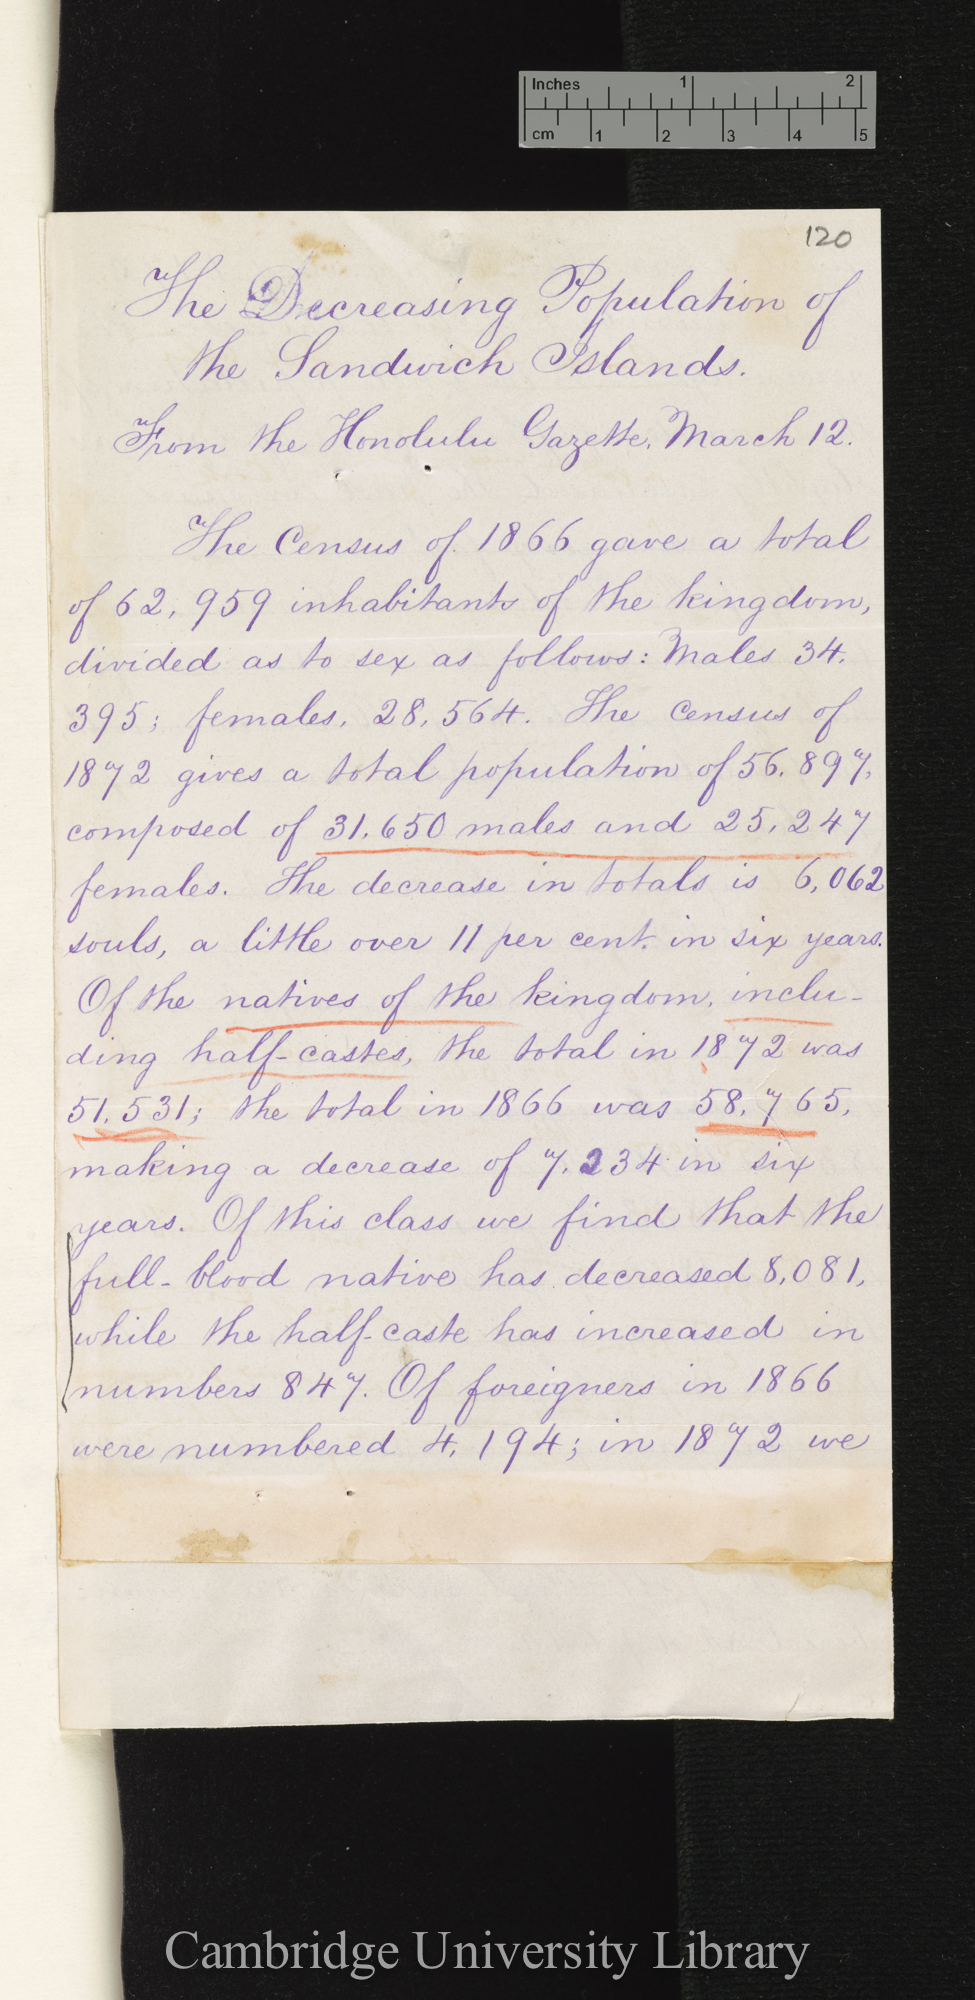 Inches 1 2
cm 1 2 3 4 5
120
The Decreasing Population of
the Sandwich Islands.
From the Honolulu Gazette, March 12.
The Census of 1866 gave a total
of 62,959 inhabitants of the kingdom,
divided as to sex as follows: Males 34,
395; females, 28,564. The Census of
1872 gives a total population of 56,897,
composed of 31,650 males and 25,247
females. The decrease in totals is 6,062
souls, a little over 11 per cent. in six years.
Of the natives of the kingdom, inclu-
ding half-castes, the total in 1872 was
51,531; the total in 1866 was 58,765,
making a decrease of 7,234 in six
years. Of this class we find that the
full-blood native has decreased 8,081,
while the half-caste has increased in
numbers 847. Of foreigners in 1866
were numbered 4,194; in 1872 we
Cambridge University Library